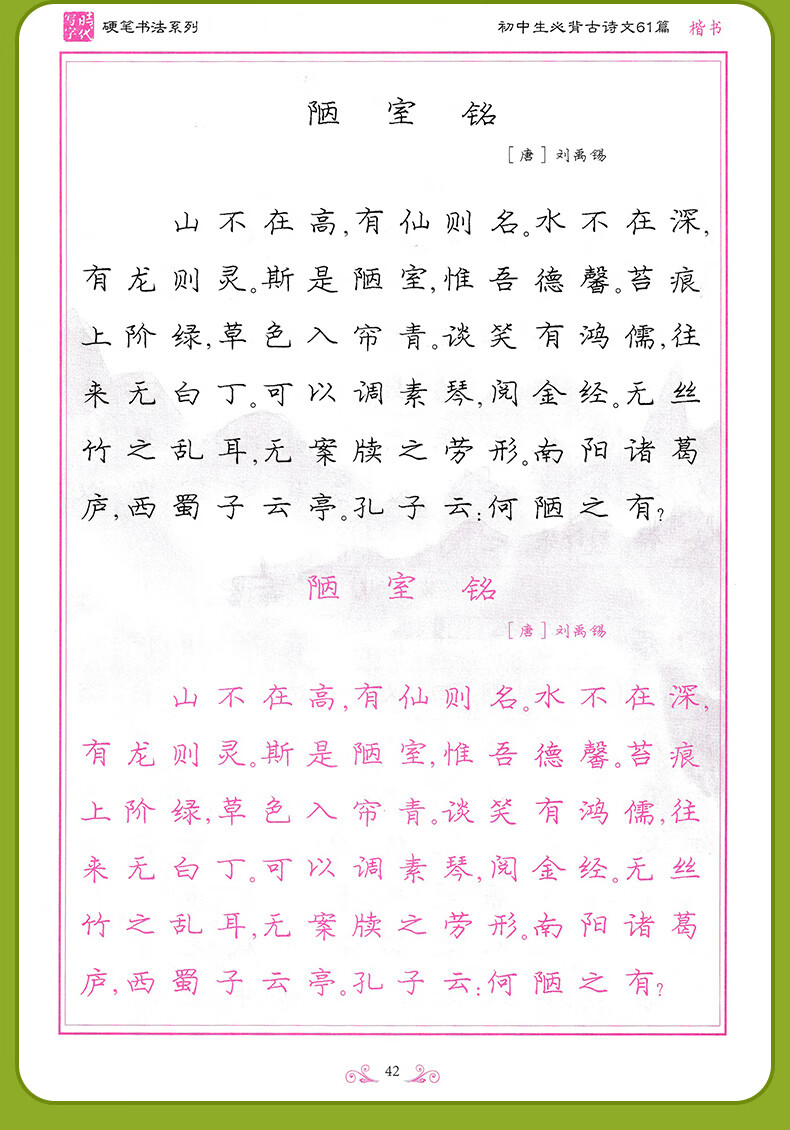 時代写字
硬笔书法系列
初中生必背古诗文61篇 楷书
陋室铭
[唐]刘禹锡
山不在高,有仙则名。水不在深,
有龙则灵。斯是陋室,惟吾德馨。苔痕
上阶绿,草色入帘青。谈笑有鸿儒,往
来无白丁。可以调素琴,阅金经。无丝
竹之乱耳,无案牍之劳形。南阳诸葛
庐,西蜀子云亭。孔子云:何陋之有?
陋室铭
[唐]刘禹锡
山不在高,有仙则名。水不在深,
有龙则灵。斯是陋室,惟吾德馨。苔痕
上阶绿,草色入帘青。谈笑有鸿儒,往
来无白丁。可以调素琴,阅金经。无丝
竹之乱耳,无案牍之劳形。南阳诸葛
庐,西蜀子云亭。孔子云:何陋之有?
42